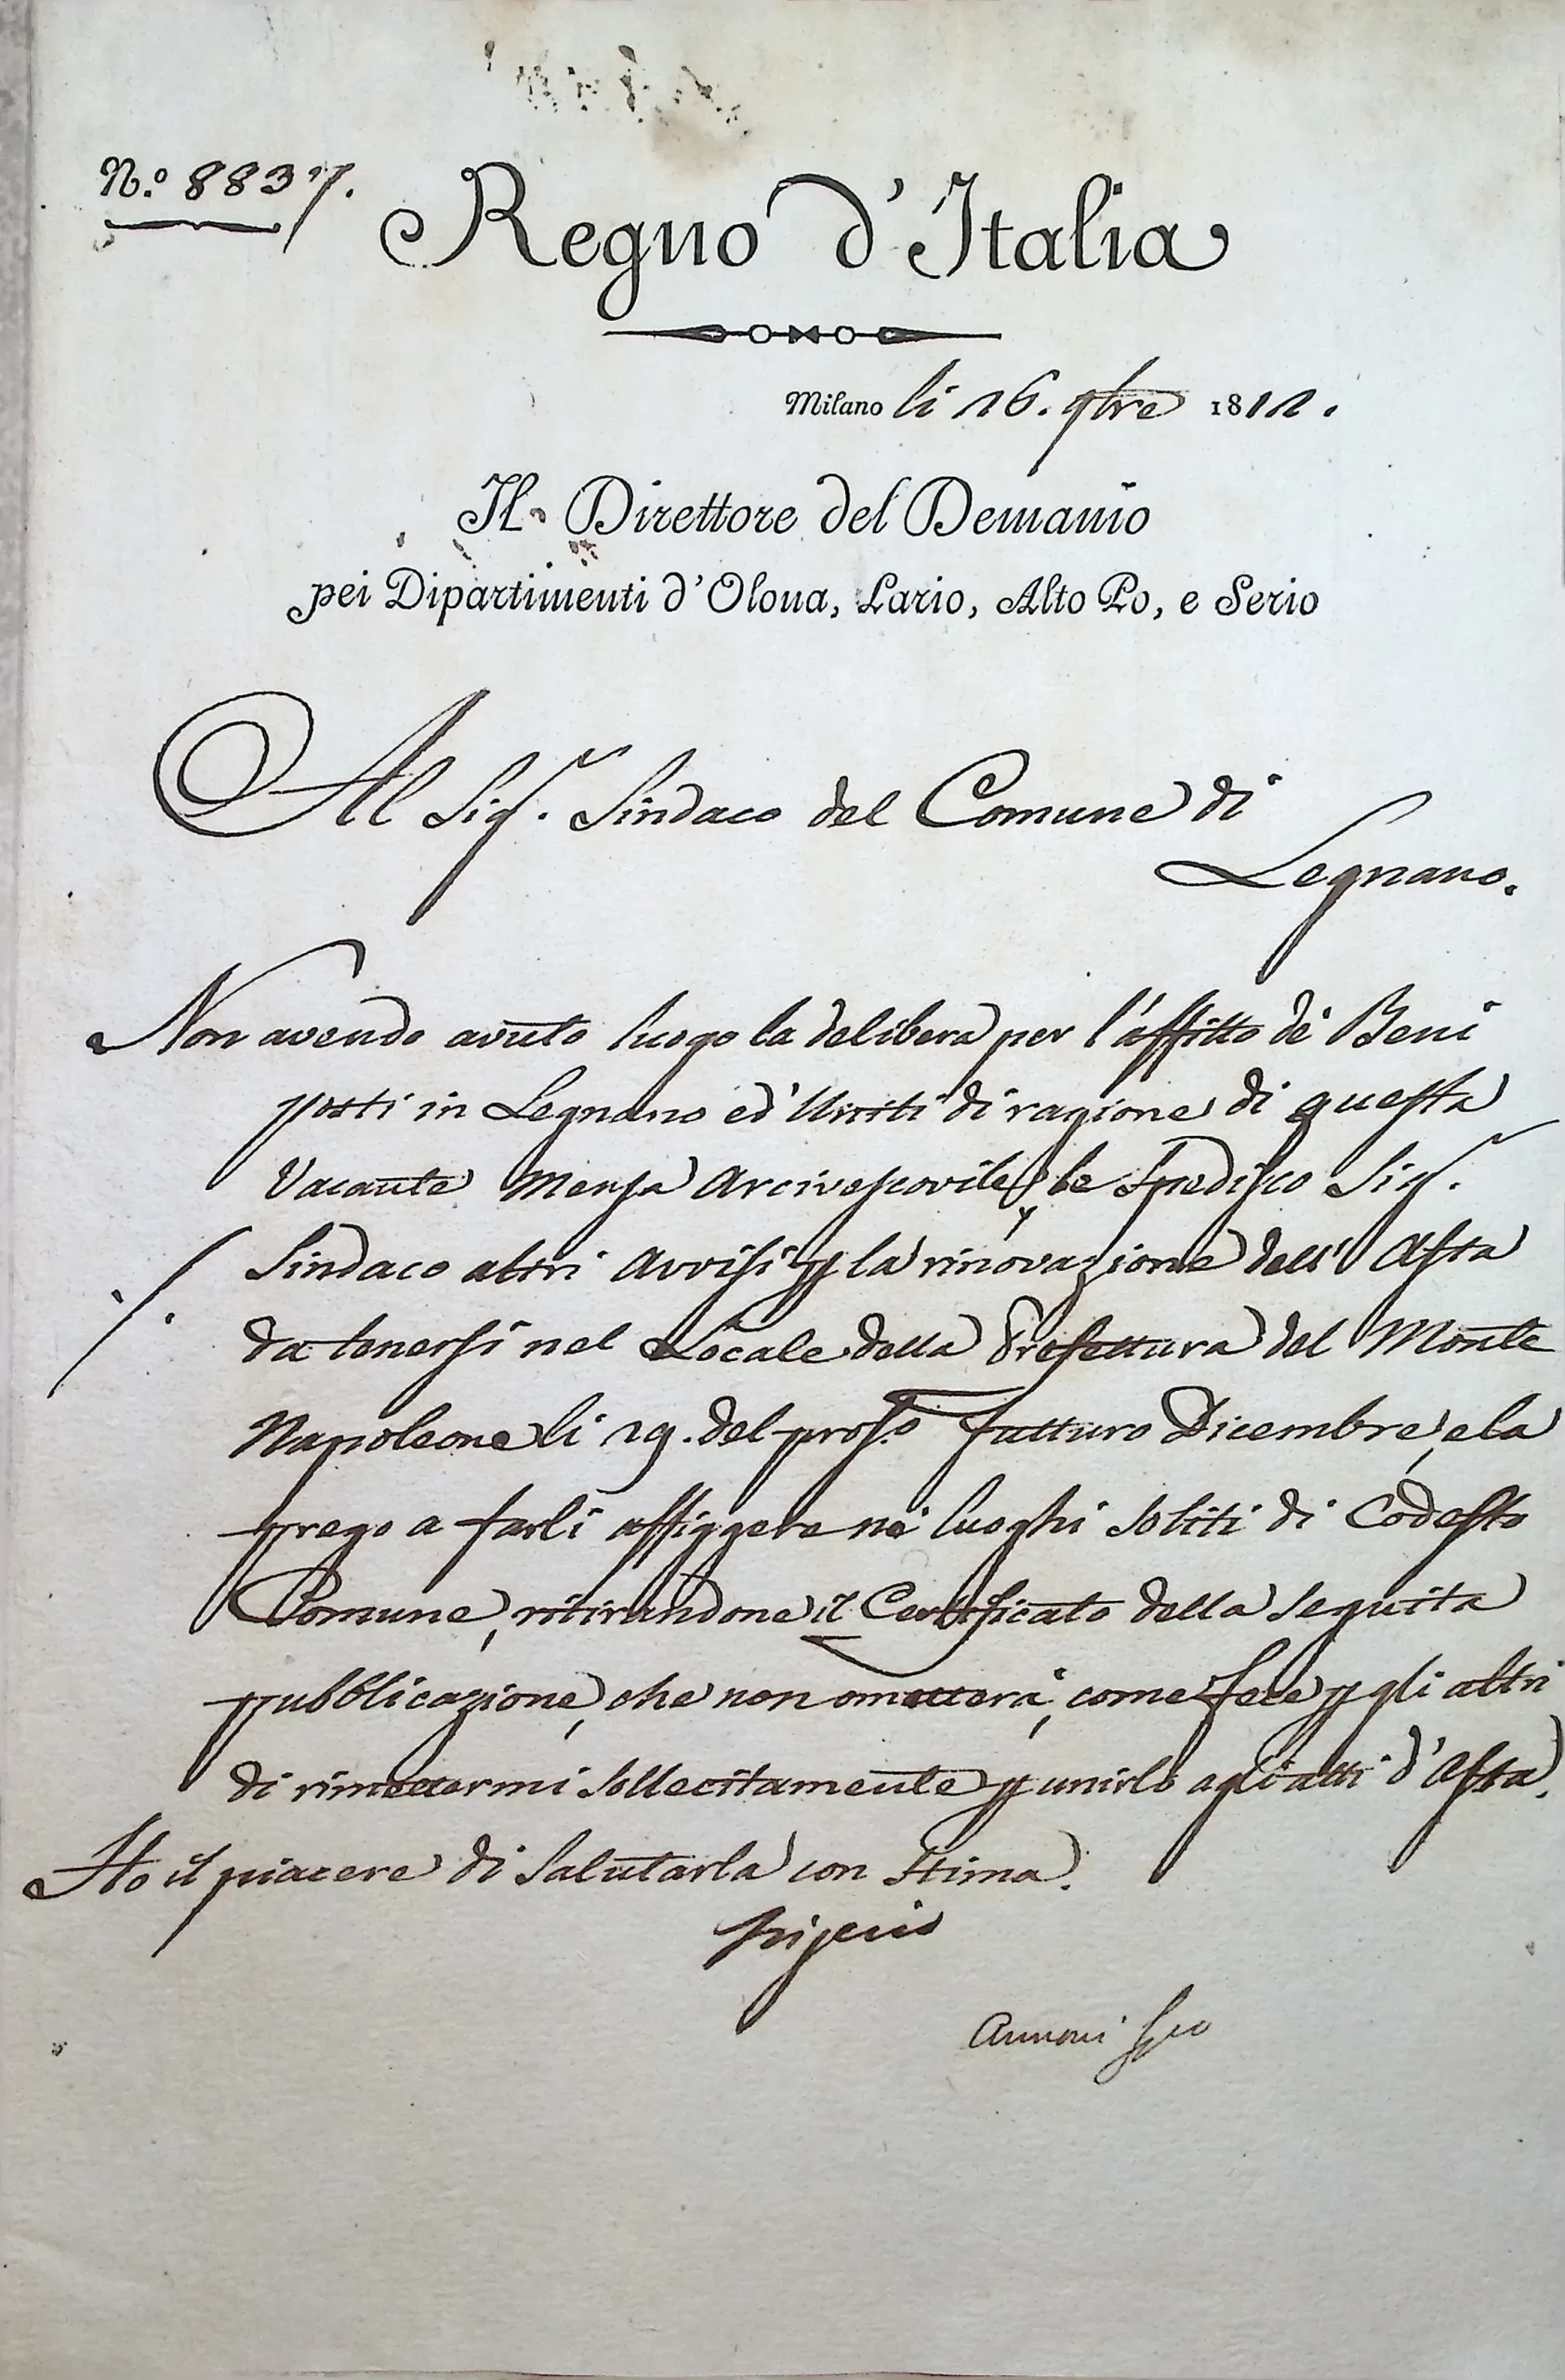 N.o 8837.
Regno d'Italia
Milano li 26. 9bre 1812.
Il Direttore del Demanio
pei Dipartimenti d'Olona, Lario, Alto Po, e Serio
Al Sigr. Sindaco del Comune di
Legnano.
Non avendo avuto luogo la delibera per l'affitto de' Beni
posti in Legnano ed Uniti di ragione di questa
Vacante Mensa Arcivescovile, le Spedisco Sigr.
Sindaco altri Avvisi p la rinovazione dell' Asta
da tenersi nel Locale della Prefettura del Monte
Napoleone li 19. del pross.o futturo Dicembre, e la
prego a farli affiggere nei luoghi soliti di Codesto
Comune, ritirandone il Certificato della seguita
pubblicazione, che non ometterà, come fece p gli altri
di rimettermi sollecitamente p unirlo agli atti d'Asta.
Ho il piacere di Salutarla con Stima.
Annoni